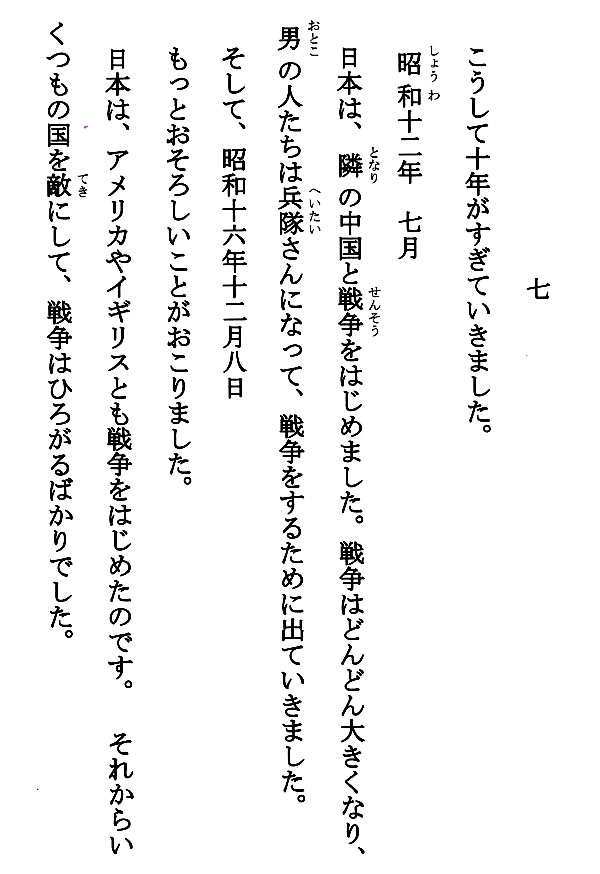 七
こうして十年がすぎていきました。
昭和十二年　七月
日本は、隣の中国と戦争をはじめました。戦争はどんどん大きくなり、
男の人たちは兵隊さんになって、戦争をするために出ていきました。
そして、昭和十六年十二月八日
もっとおそろしいことがおこりました。
日本は、アメリカやイギリスとも戦争をはじめたのです。　それからい
くつもの国を敵にして、戦争はひろがるばかりでした。
しょうわ
となり
せんそう
おとこ
へいたい
てき